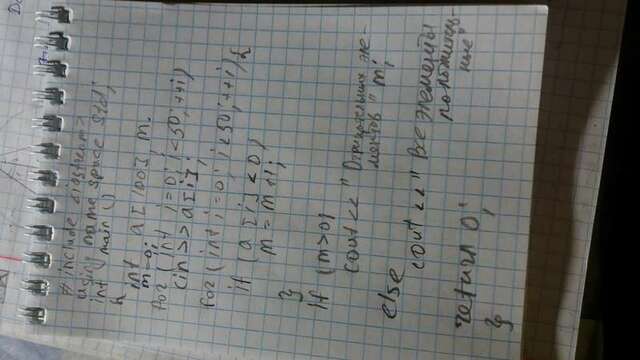 # include <iostream>
using name space std;
int main ()
{
int a[100], m.
m=0;
for (int i=0; i<50; ++i)
cin>>a[i];
for (int i=0; i<50; ++i) {
if (a[i]<0)
m=m+1;
}
if (m>0)
cout<< "Отрицательных эле-
ментов" m;
else
cout<< "Все элементы
положитель-
ные"
return 0;
}